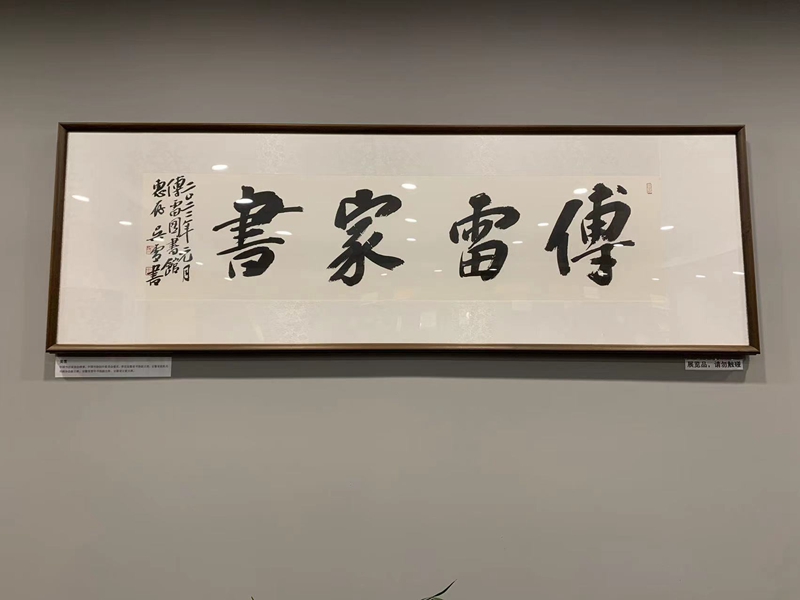 傅雷家書
二〇二二年元月
傅雷图書館
惠存 吴雪書
展览品，请勿触碰